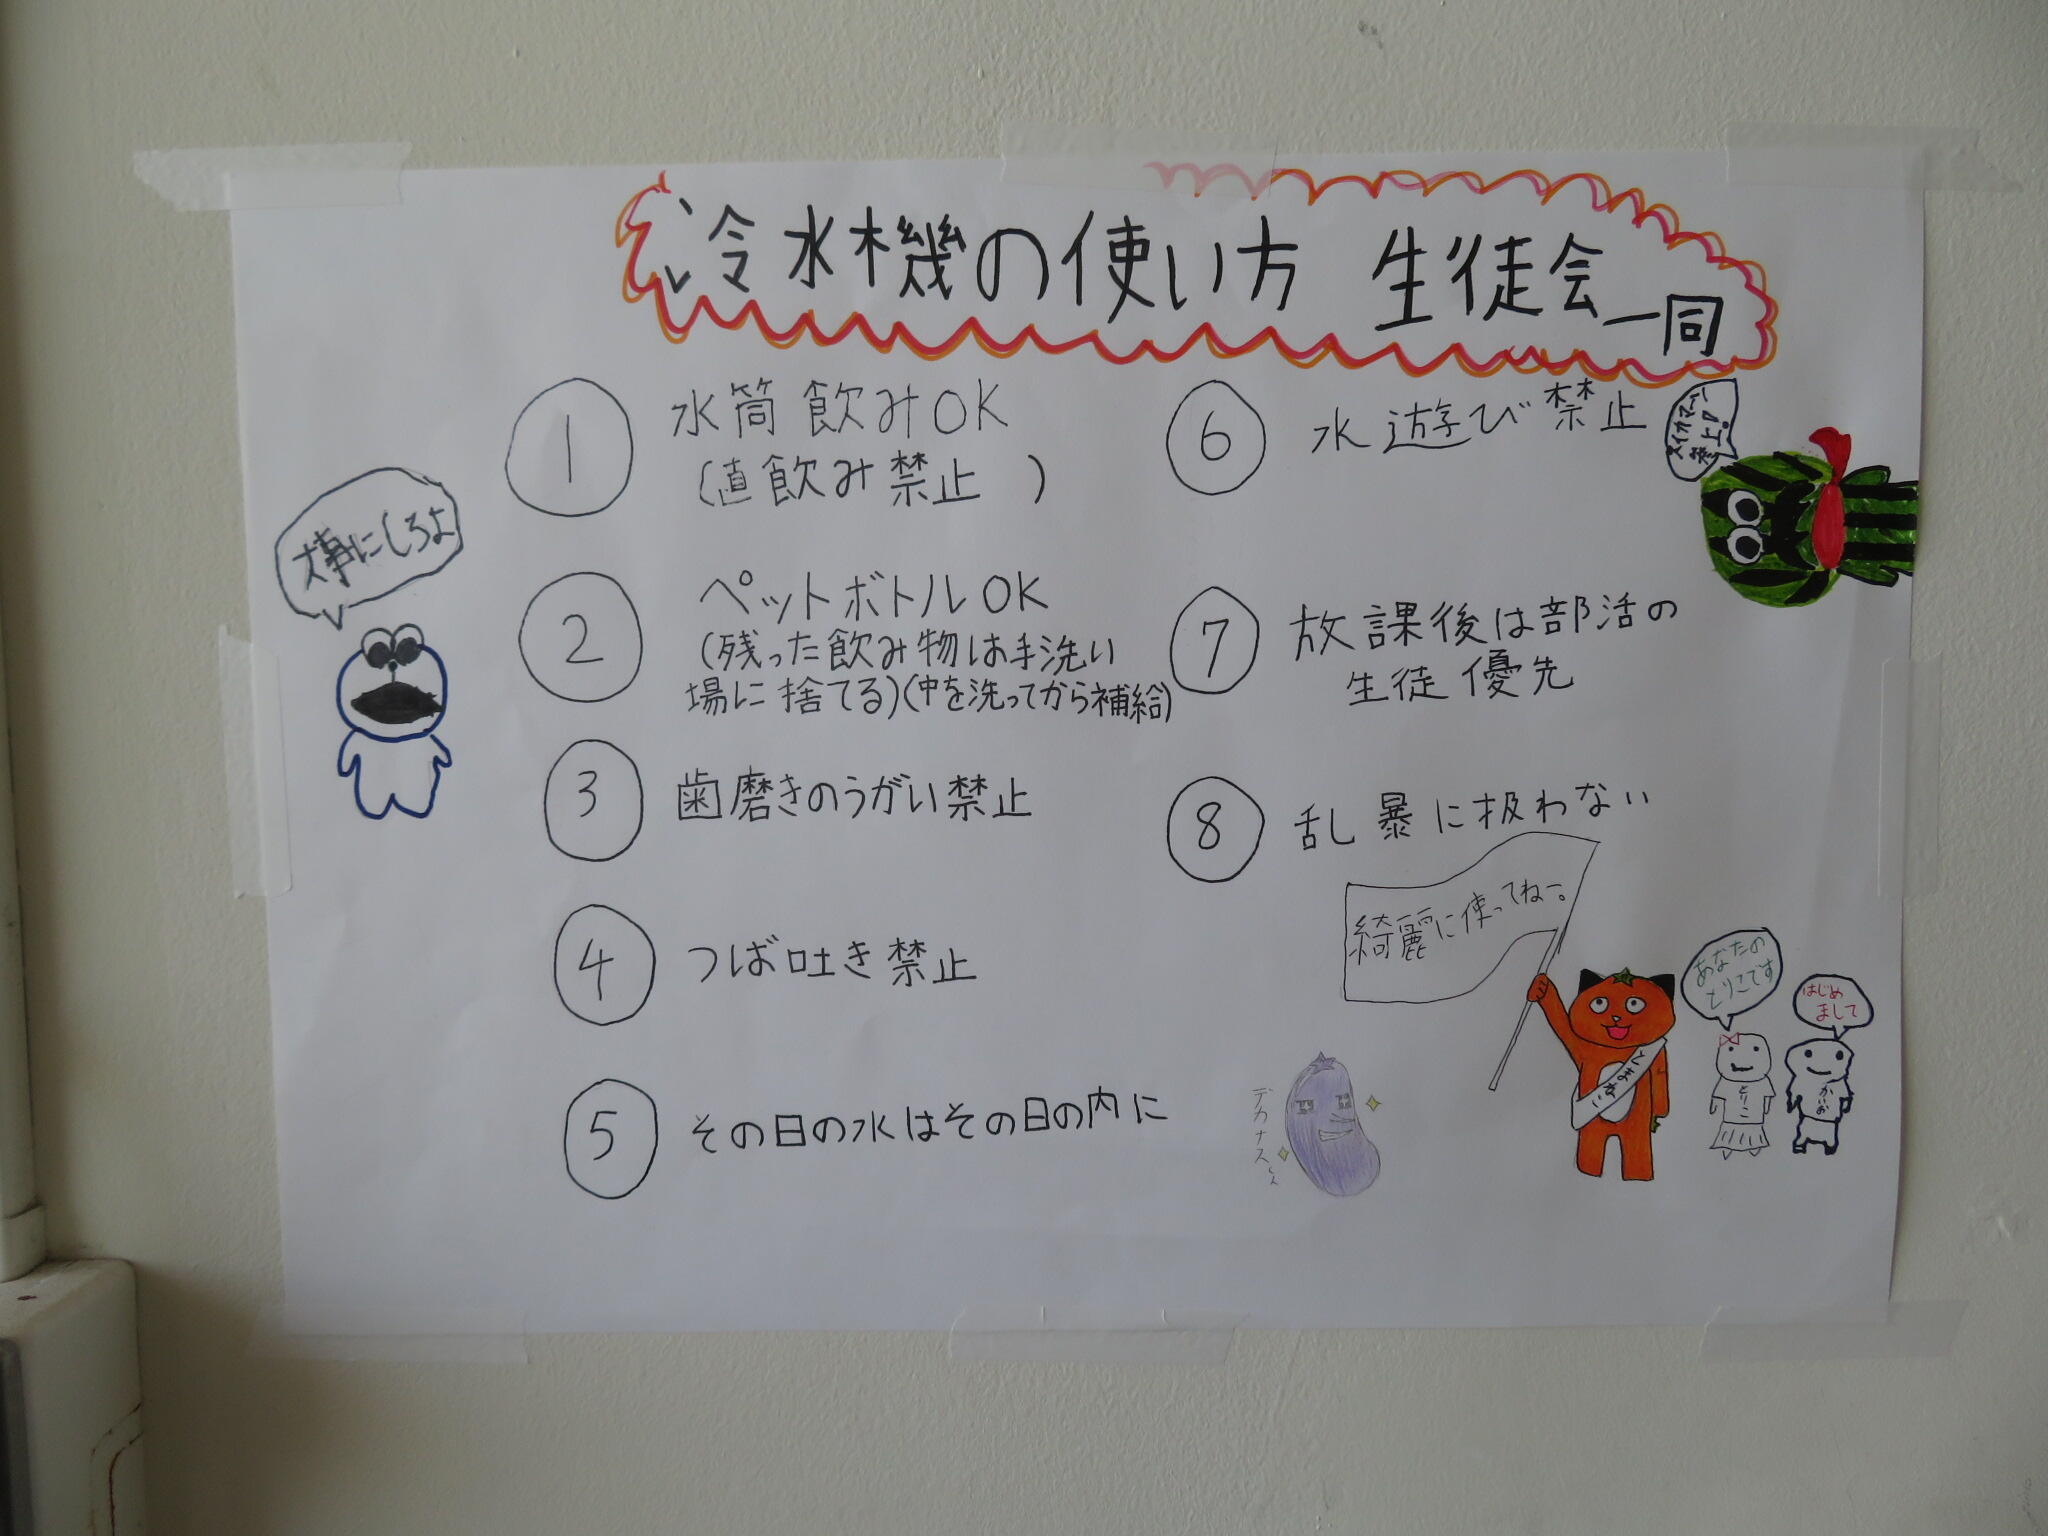 冷水機の使い方 生徒会一同
① 水筒飲みOK
(直飲み禁止 )
② ペットボトルOK
(残った飲み物は手洗い
場に捨てる)(中を洗ってから補給)
③ 歯磨きのうがい禁止
④ つば吐き禁止
⑤ その日の水はその日の内に
⑥ 水遊び禁止
⑦ 放課後は部活の
生徒優先
⑧ 乱暴に扱わない
大事にしろよ
スイカマン
参上!
綺麗に使ってねー。
あなたの
とりこです
はじめ
まして
とりこ
かいお
デカナス